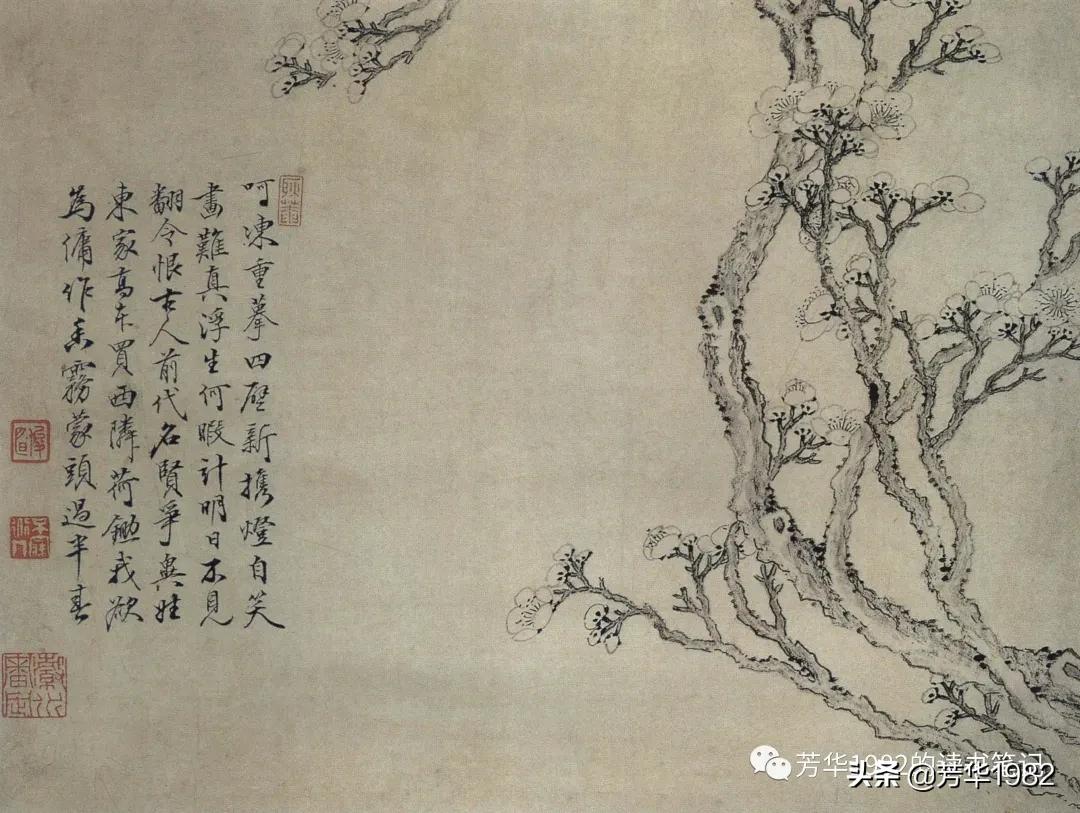 呵凍重摹四壁新擕燈自笑
畫難真浮生何暇計明日不見
翻令恨古人前代名賢爭與姓
東家高買西隣荷鋤我欲
爲傭作香霧蒙頭過半春
芳华1982的读书笔记
头条 @芳华1982